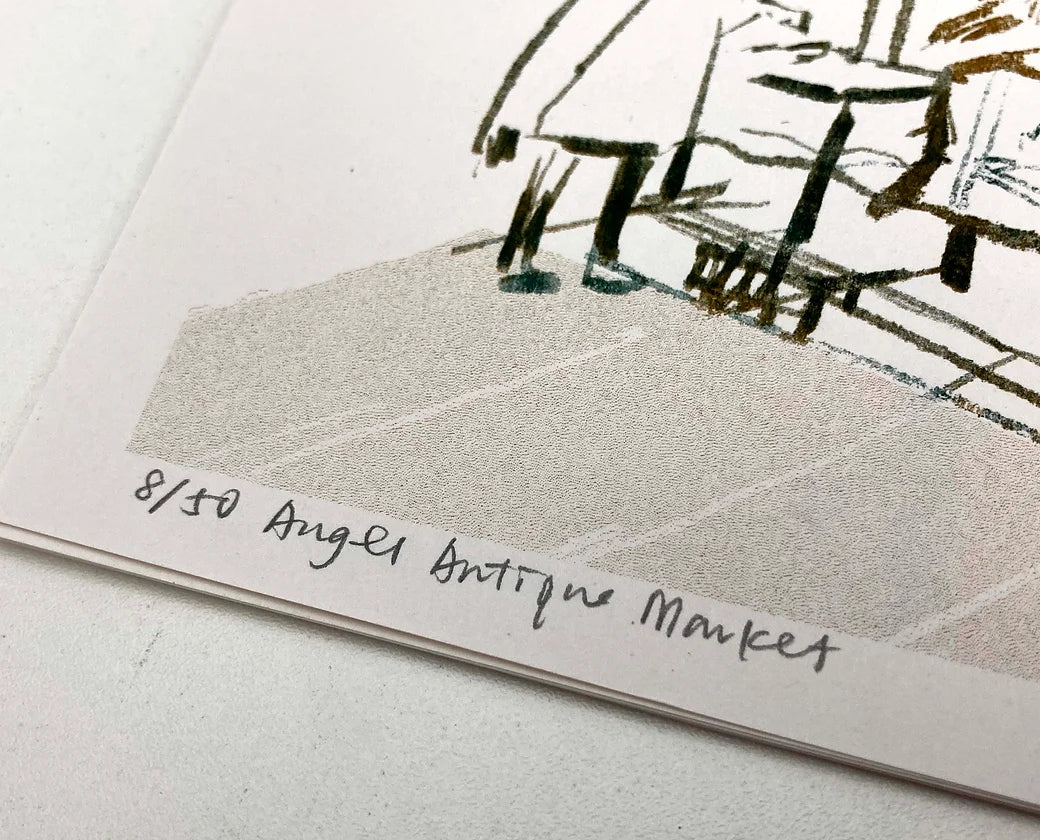 8/50 Angel Antique Market